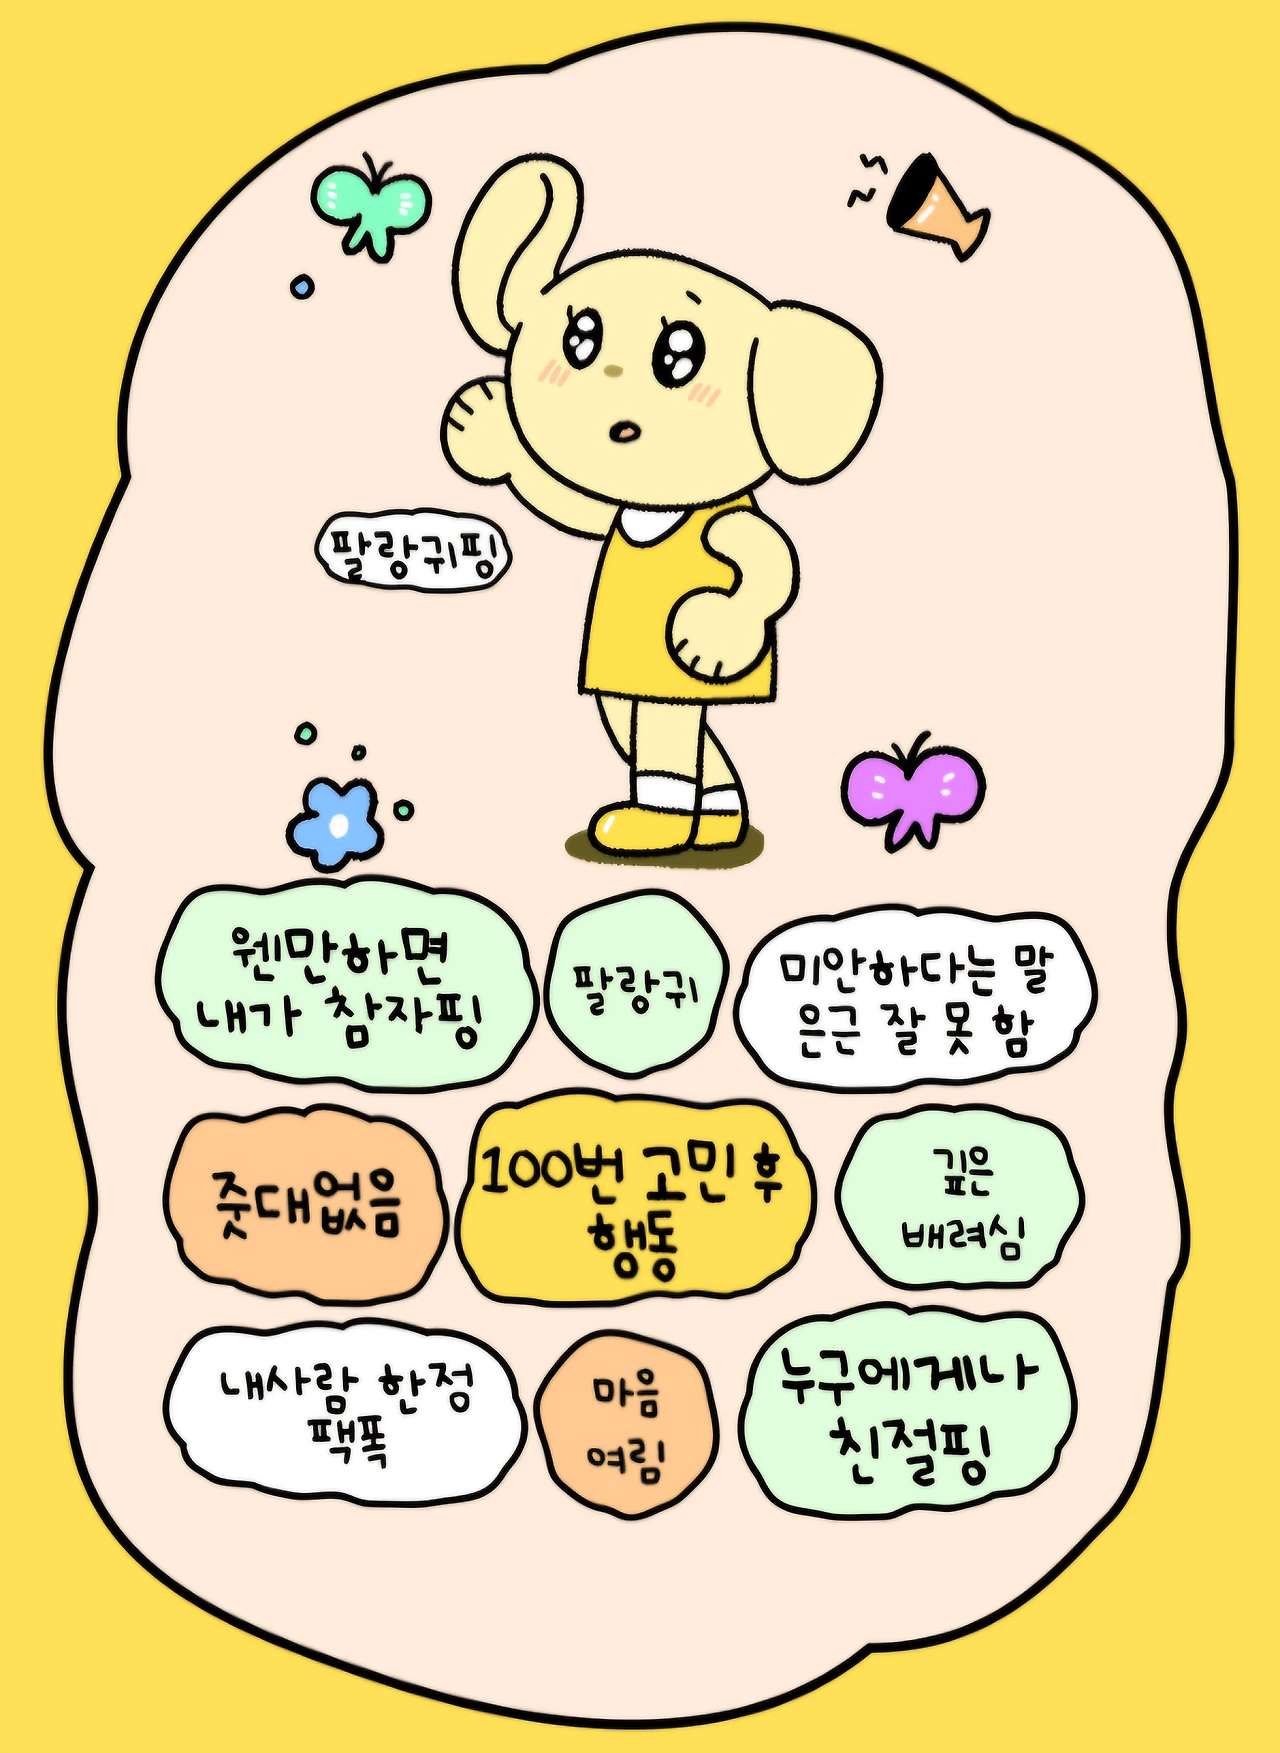 팔랑귀핑
웬만하면
내가 참자핑
팔랑귀
미안하다는 말
은근 잘 못 함
줏대없음
100번 고민 후
행동
깊은
배려심
내사람 한정
팩폭
마음
여림
누구에게나
친절핑